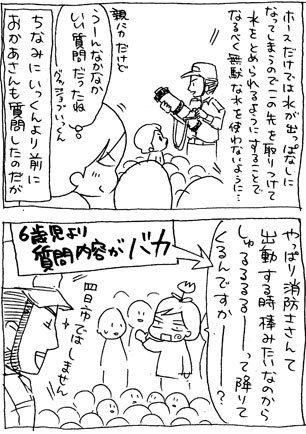 ホースだけでは水が出っぱなしに
なってしまうのでこの先を取りつけて
水をとめられるようにすることで
なるべく無駄な水を使わないように…
親バカだけど
うーんなかなか
いい質問
だったね
グッジョブいっくん
ちなみにいっくんより前に
おかあさんも質問したのだが
やっぱり消防士さんて
出動する時棒みたいなのから
しゅるるるるーーって降りて
くるんですかーー?
6歳児より
質問内容がバカ
四日市ではしません